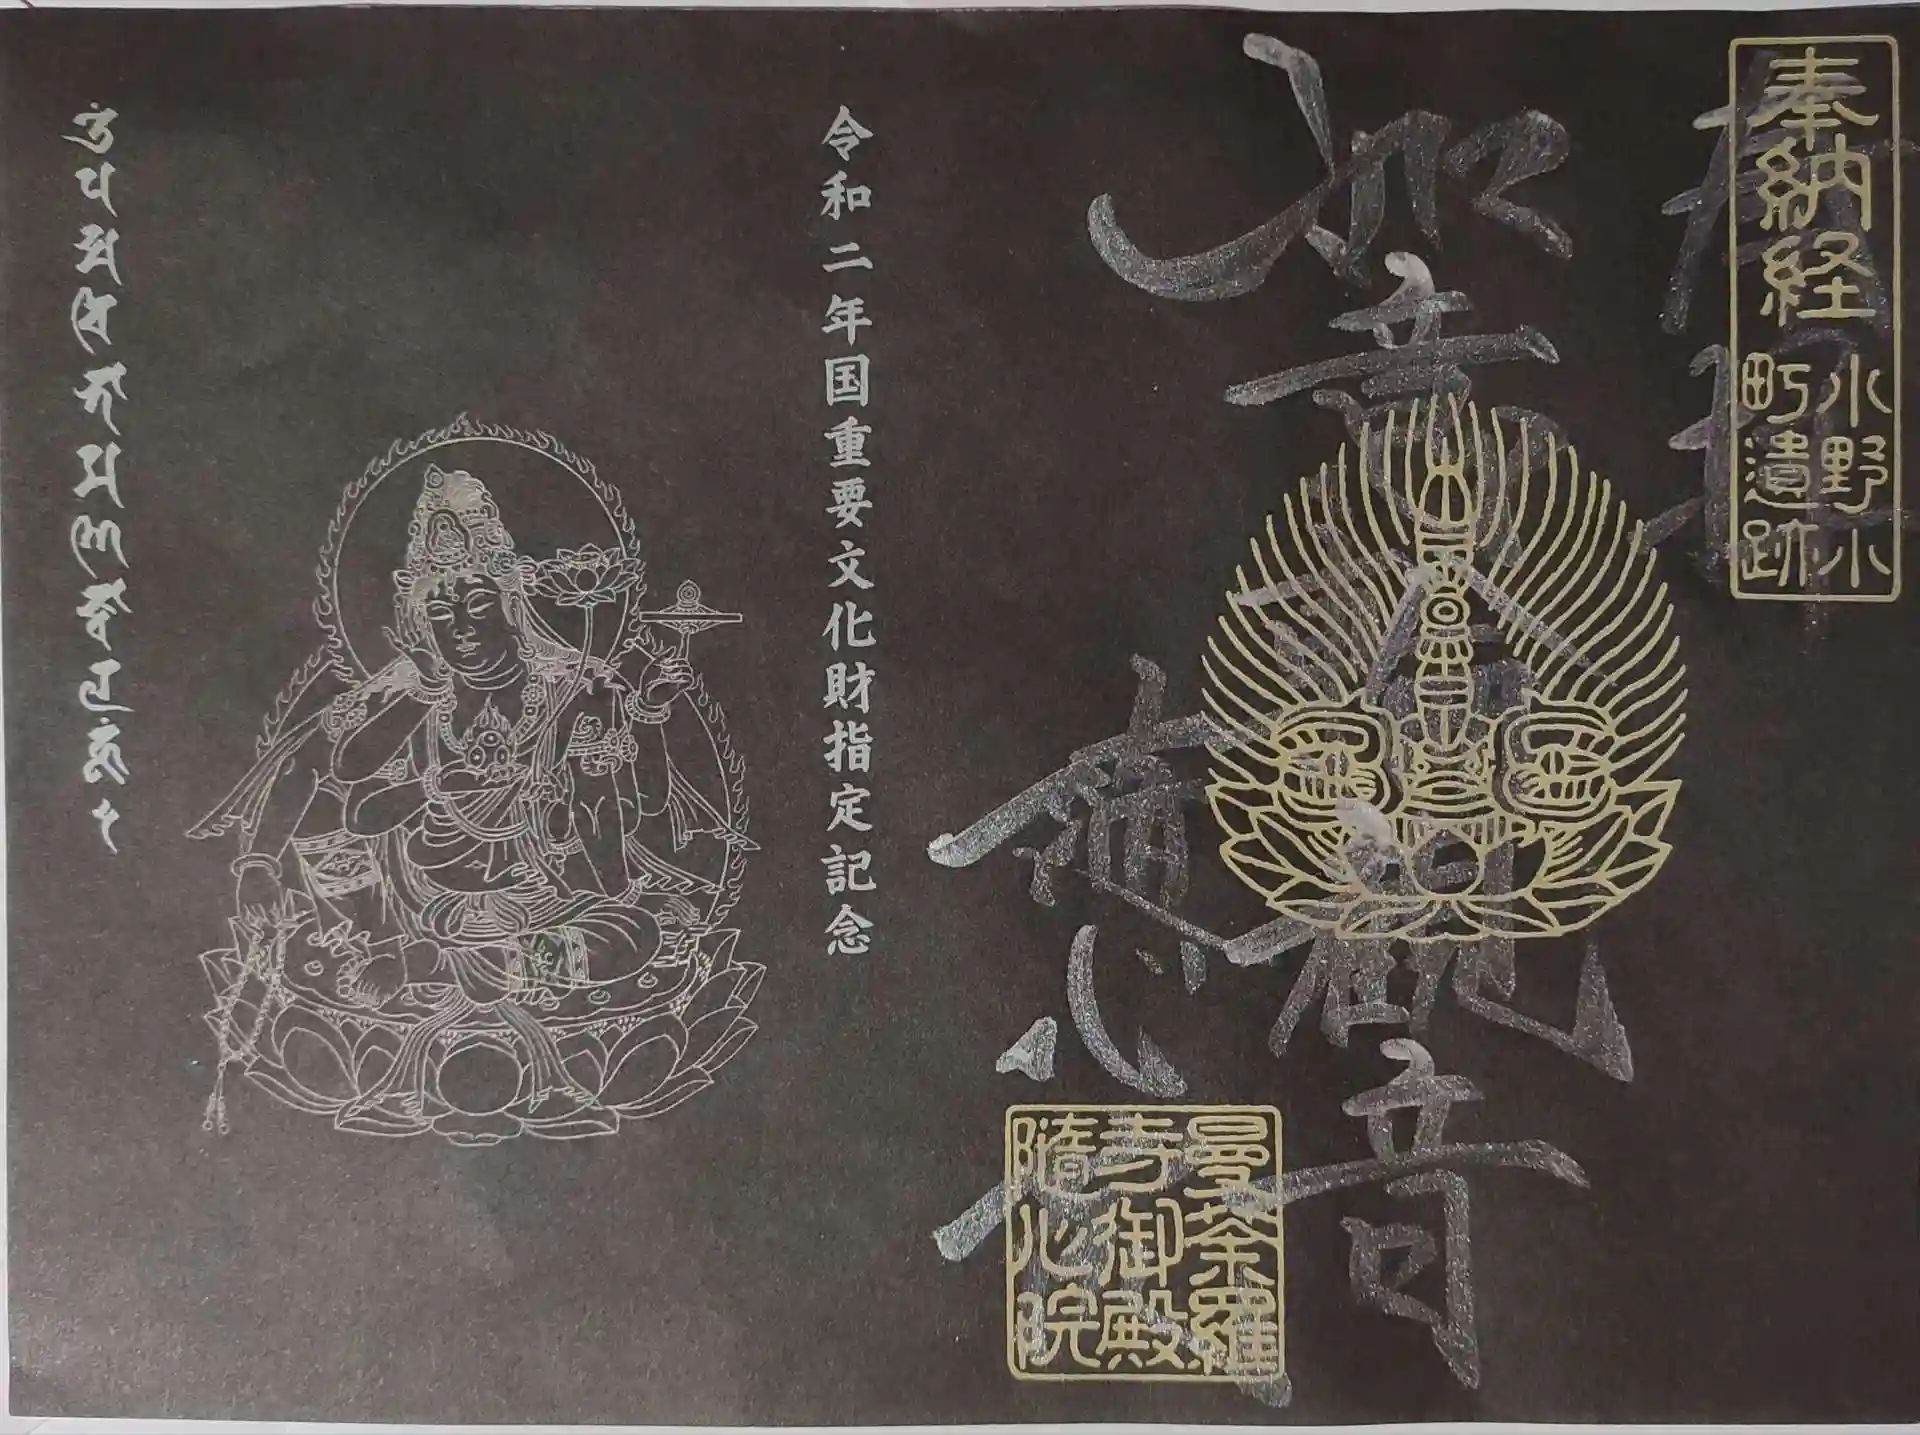 奉納経
小野小
町遺跡
奉拝
如意輪観音
曼荼羅
寺御殿
隨心院
隨心院
令和二年国重要文化財指定記念